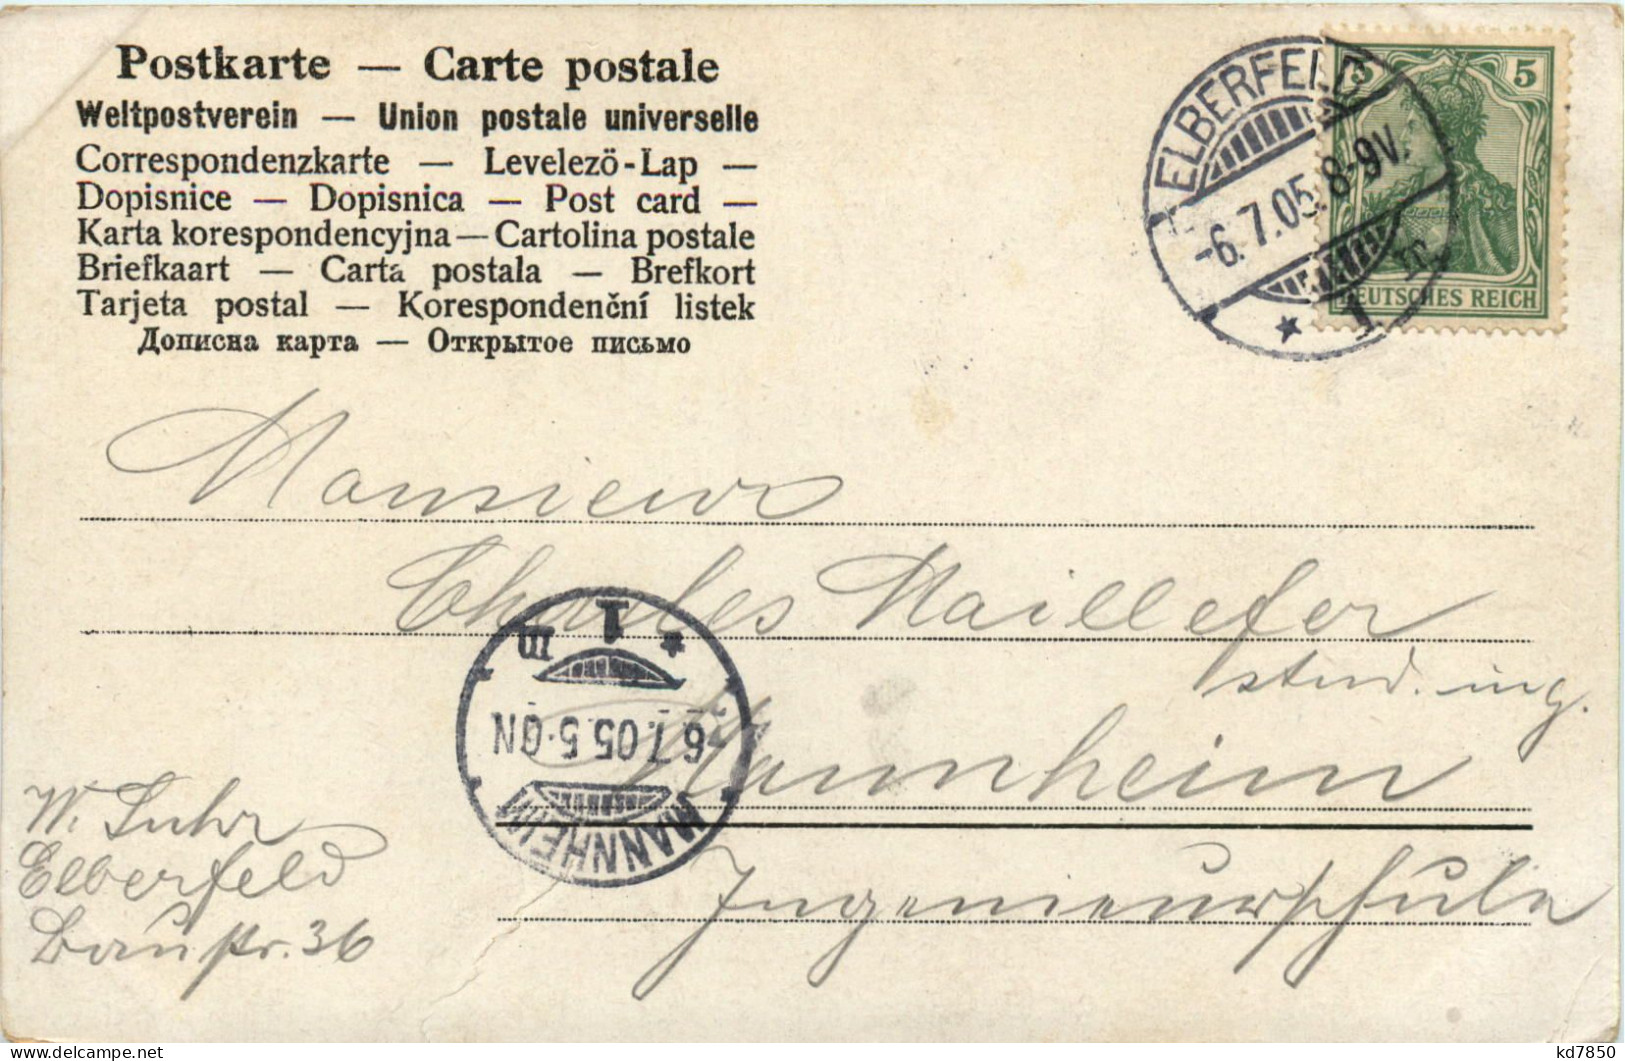 Postkarte — Carte postale
Weltpostverein — Union postale universelle
Correspondenzkarte — Levelezö-Lap —
Dopisnice — Dopisnica — Post card —
Karta korespondencyjna — Cartolina postale
Briefkaart — Carta postala — Brefkort
Tarjeta postal — Korespondenční listek
Дописна карта — Открытое письмо
ELBERFELD
-6.7.05. 8-9V.
* 1
5 5
DEUTSCHES REICH
Monsieur
Charles Maillefer
stud. ing.
Mannheim
Ingenieurschule
MANNHEIM
6.7.05. 5-6N
* 1
W. Suhr
Elberfeld
Baustr. 36
kd7850